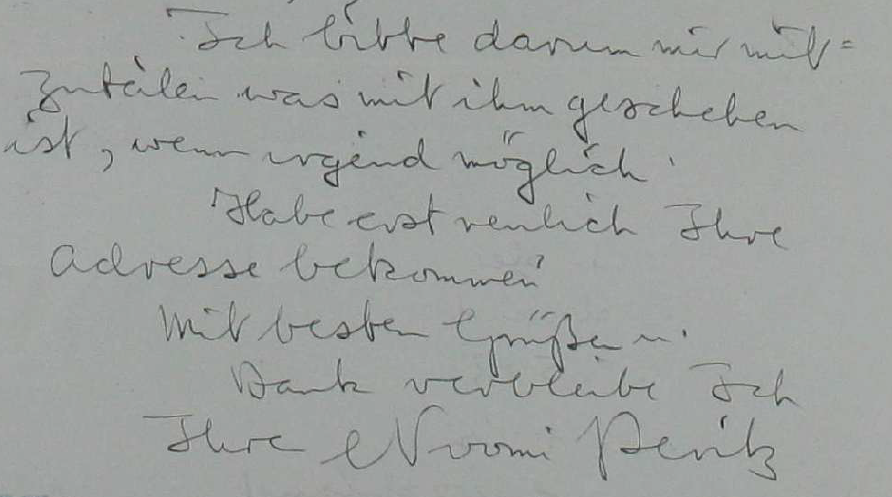 Ich bitte darum mir mit=
zuteilen was mit ihm geschehen
ist, wenn irgend möglich.
Habe erst neulich Ihre
Adresse bekommen
Mit besten Grüßen u.
Dank verbleibe Ich
Ihre Noomi Peritz